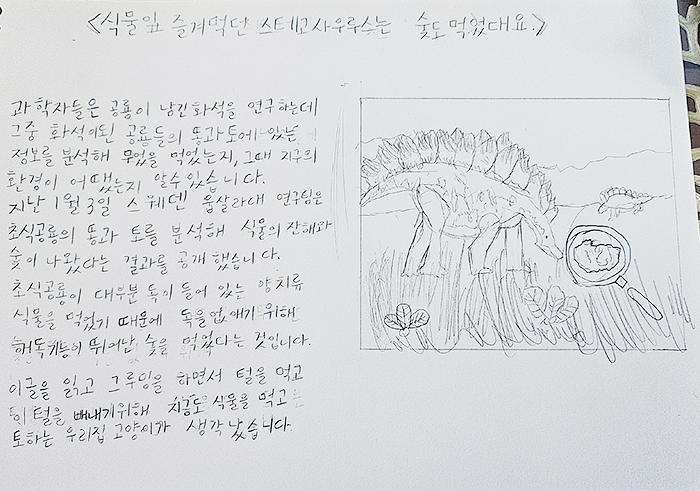 <식물잎 즐겨먹던 스테고사우루스는 숯도 먹었대요.>
과학자들은 공룡이 남긴 화석을 연구하는데
그중 화석이된 공룡들의 똥과 토에 있는
정보를 분석해 무엇을 먹었는지, 그때 지구의
환경이 어땠는지 알수 있습니다.
지난 1월 3일 스웨덴 웁살라대 연구팀은
초식공룡의 똥과 토를 분석해 식물의 잔해와
숯이 나왔다는 결과를 공개했습니다.
초식공룡이 대부분 독이 들어 있는 양치류
식물을 먹었기 때문에 독을 없애기 위해
해독기능이 뛰어난 숯을 먹었다는 것입니다.
이글을 읽고 그루밍을 하면서 털을 먹고
이 털을 빼내기위해 지금도 식물을 먹고
토하는 우리집 고양이가 생각났습니다.